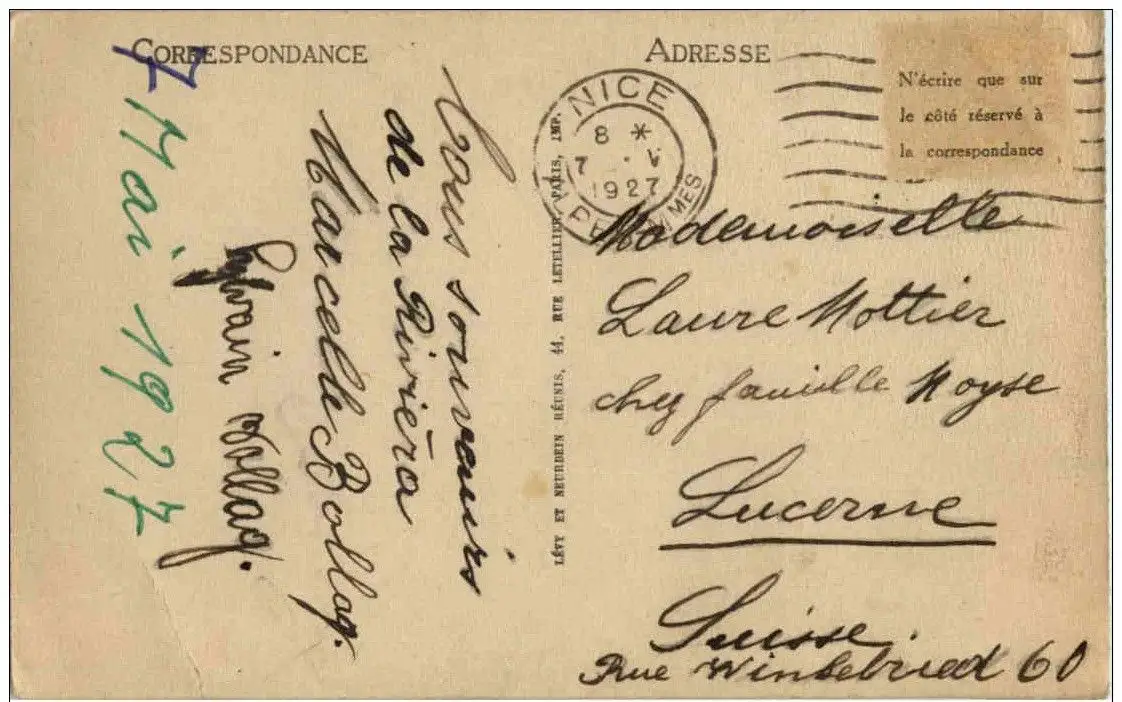 CORRESPONDANCE
Tous souvenirs
de la Rivièra
Marcelle Bollag.
Sylvain Bollag.
7 Mai 1927
LÉVY ET NEURDEIN RÉUNIS, 44, RUE LETELLIER, PARIS, IMP.
ADRESSE
NICE
8 *
7 - V
1927
ALPES MMES
N'écrire que sur
le côté réservé à
la correspondance
Mademoiselle
Laure Mottier
chez famille Moyse
Lucerne
Suisse.
Rue 60